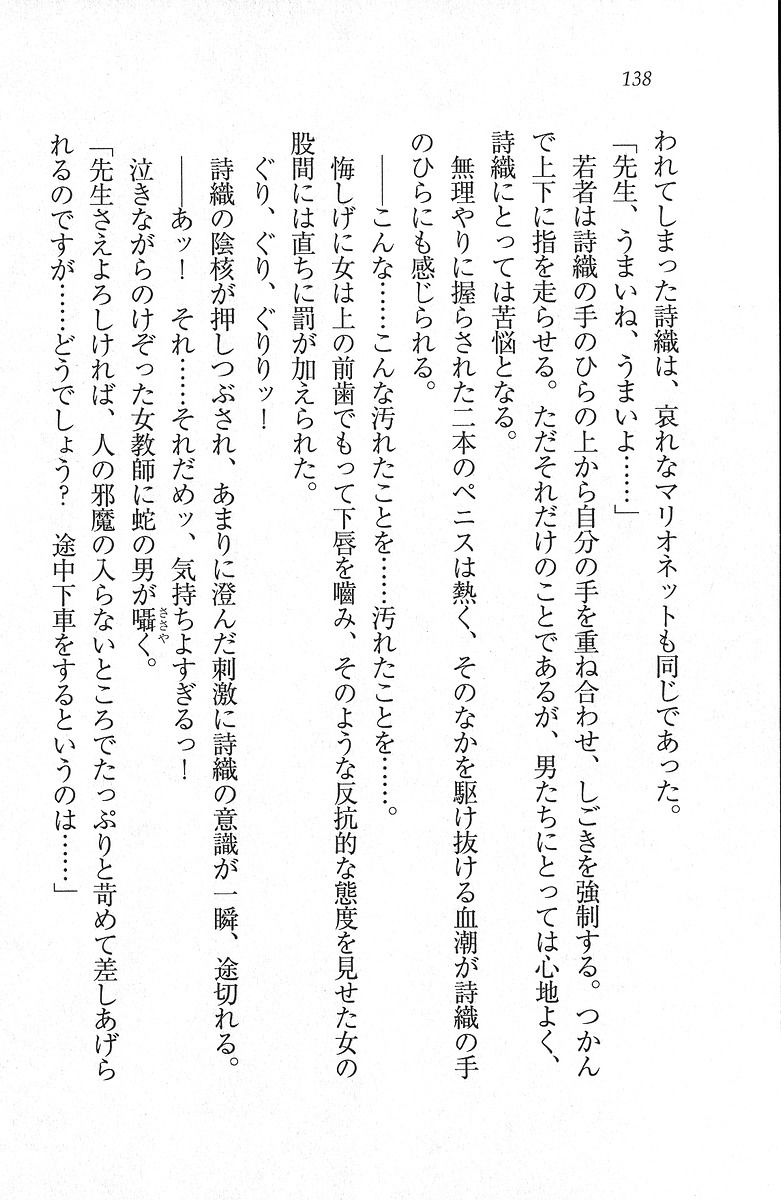 138
われてしまった詩織は、哀れなマリオネットも同じであった。
「先生、うまいね、うまいよ……」
　若者は詩織の手のひらの上から自分の手を重ね合わせ、しごきを強制する。つかん
で上下に指を走らせる。ただそれだけのことであるが、男たちにとっては心地よく、
詩織にとっては苦悩となる。
　無理やりに握らされた二本のペニスは熱く、そのなかを駆け抜ける血潮が詩織の手
のひらにも感じられる。
　――こんな……こんな汚れたことを……汚れたことを……。
　悔しげに女は上の前歯でもって下唇を嚙み、そのような反抗的な態度を見せた女の
股間には直ちに罰が加えられた。
　ぐり、ぐり、ぐりりッ！
　詩織の陰核が押しつぶされ、あまりに澄んだ刺激に詩織の意識が一瞬、途切れる。
　――あッ！　それ……それだめッ、気持ちよすぎるっ！
　泣きながらのけぞった女教師に蛇の男が囁く。
ささや
「先生さえよろしければ、人の邪魔の入らないところでたっぷりと苛めて差しあげら
れるのですが……どうでしょう？　途中下車をするというのは……」